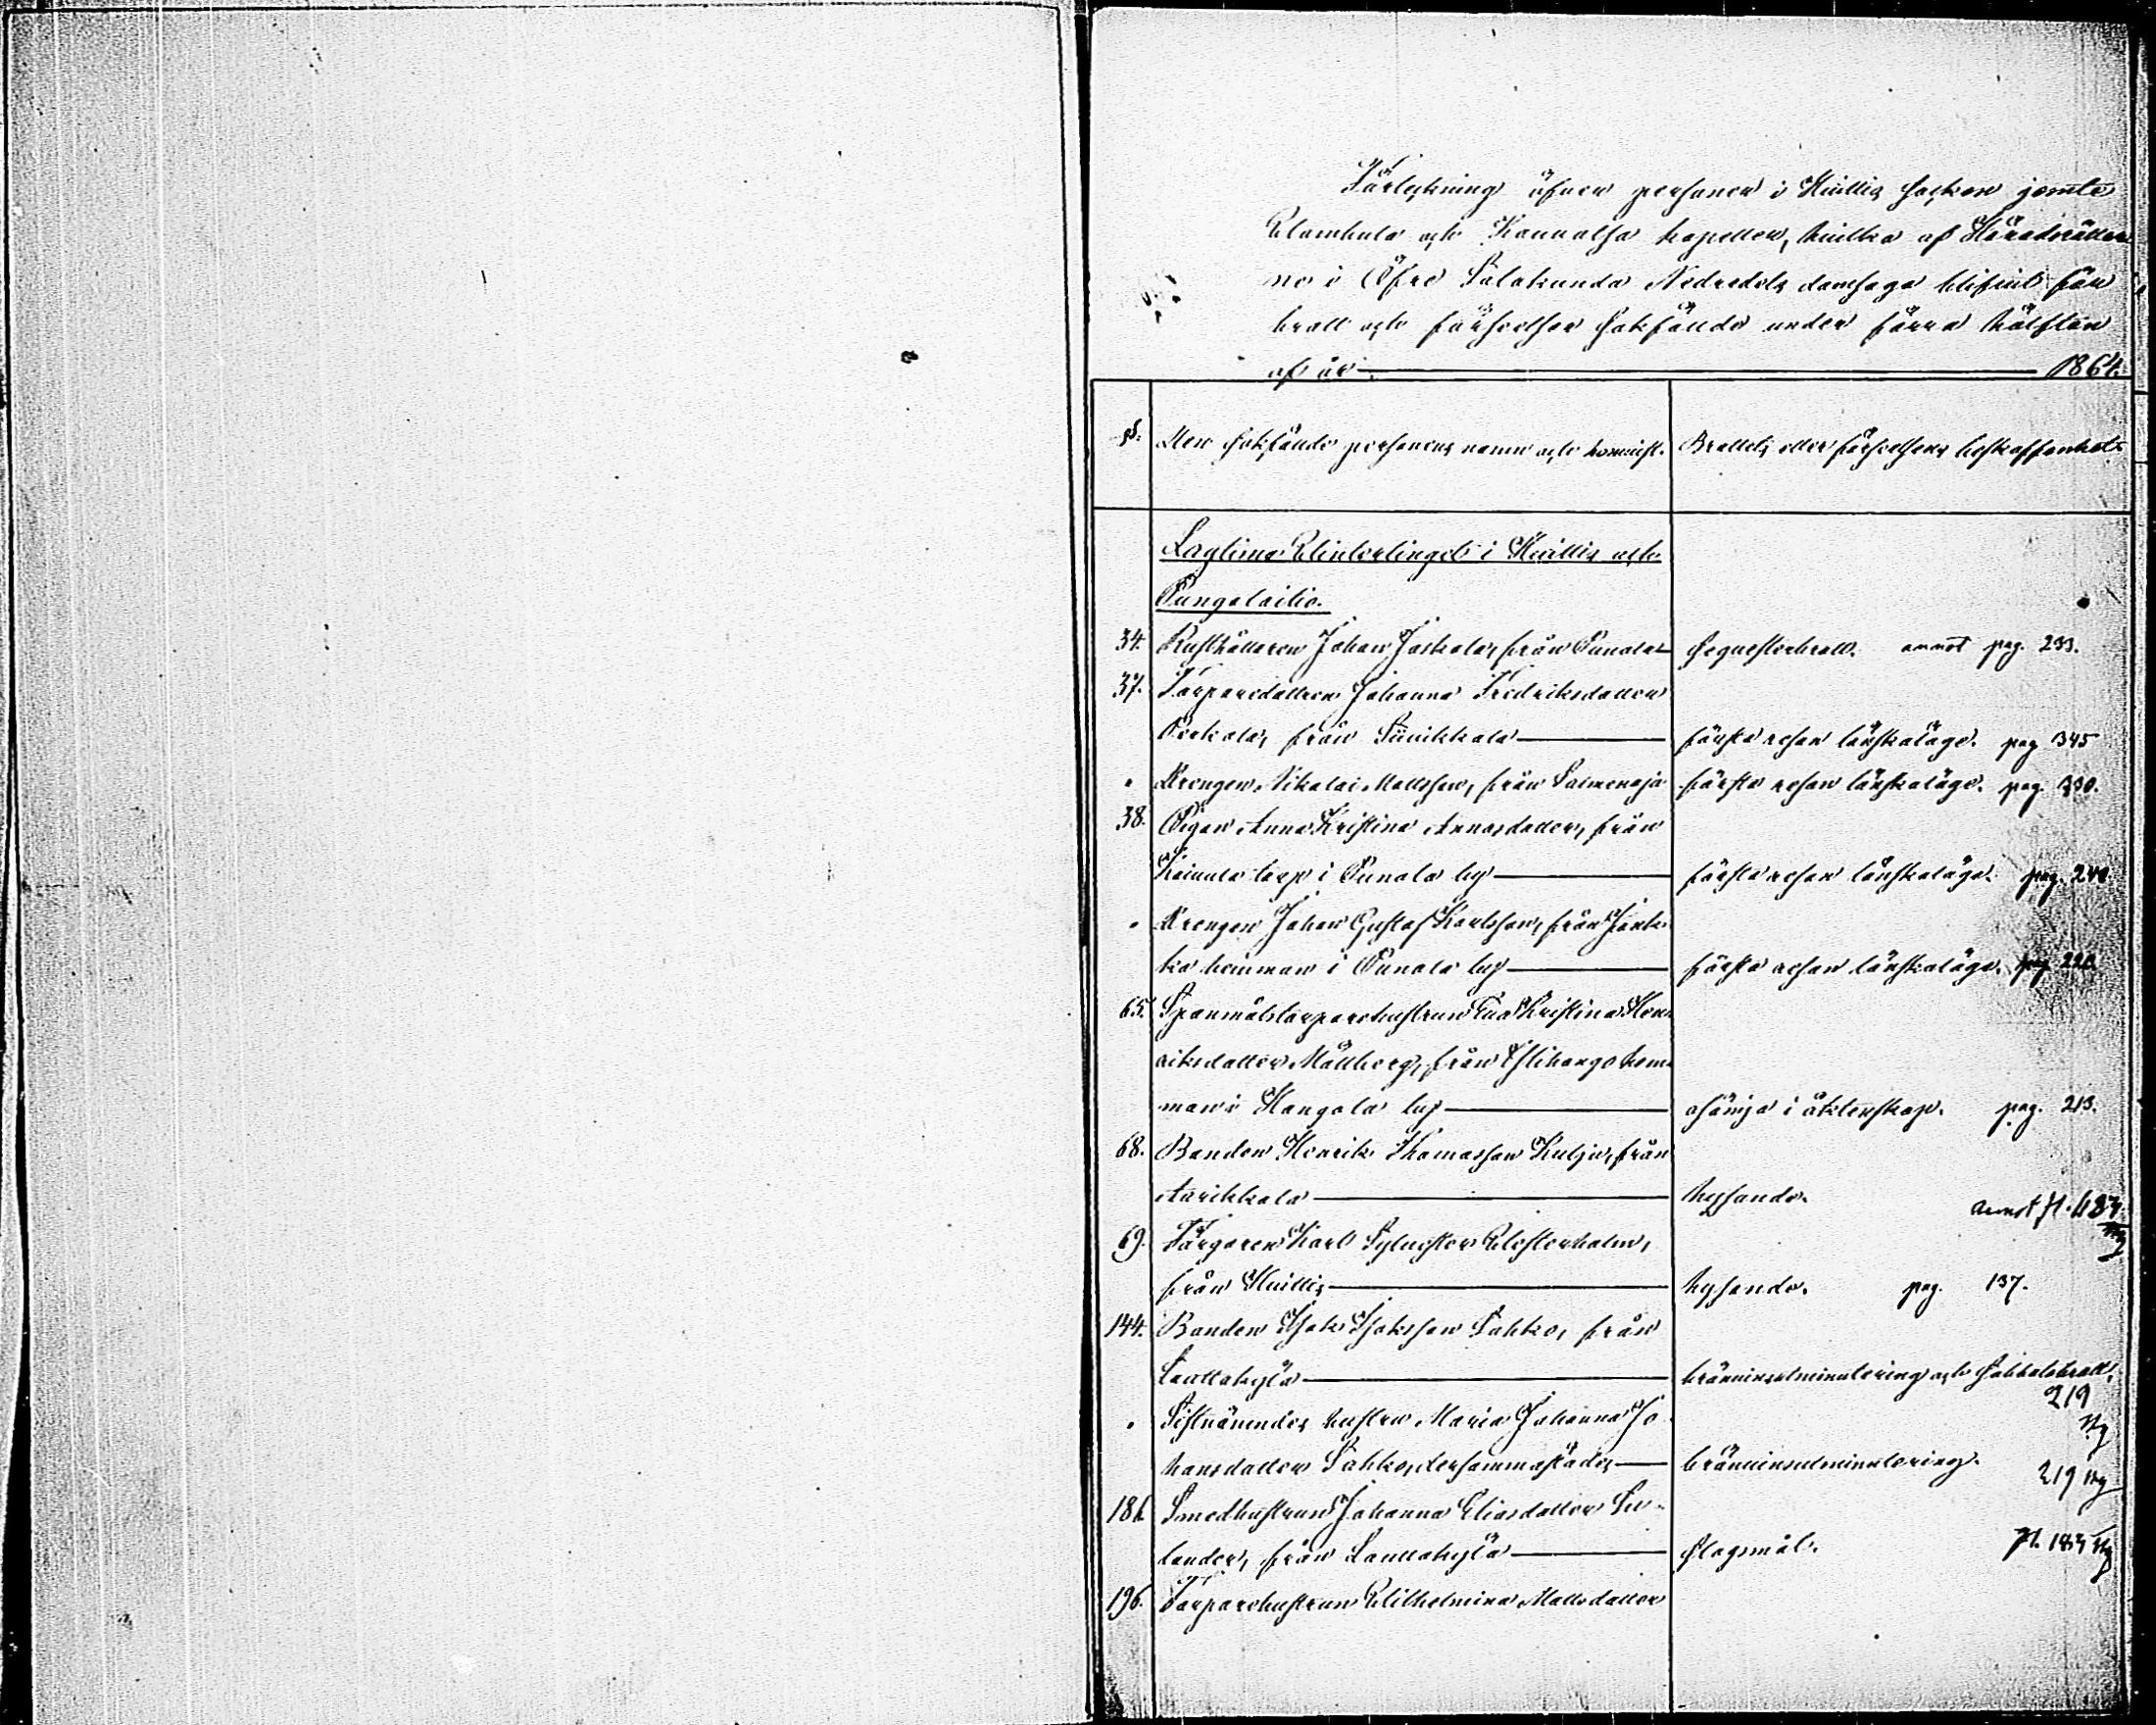 Förteckning öfver personer i Huittis socken jemte
Wambula och Kauvatsa kapeller, hvilka af Häradsrätter-
ne i Öfre Satakunda Nedredels domsaga blifvit för
brott och förseelser sakfällde under förra hälften
af år 1864.
§§. Den sakfällde personens namn och hemvist. Brottets eller förseelsens beskaffenhet.
Lagtima Wintertinget i Huittis och
Pungalaitio.
34. Rusthållaren Johan Jaskala, från Punola sequesterbrott. annot pag. 233.
37. Torparedottren Johanna Fredriksdotter
Perkola, från Sunikkala första resan lönskaläge. pag 345
" Drengen Nikolai Mattsson, från Salmenoja första resan lönskaläge. pag. 330.
38. Pigan Anna Kristina Annasdotter, från
torp i Punola by första resan lönskaläge. pag. 240.
" Drengen Johan Gustaf Karlsson, från Jask-
ka hemman i Punola by första resan lönskaläge. pag 220
65. Spanmålstorparehustrun Eva Kristina Hen-
riksdotter Mållberg, från hem-
man i Hangola by osämja i äktenskap. pag. 213.
68. Bonden Henrik Thomasson Kulju, från
Karikkala hysande. annot fl. 487
69. Färgaren Karl Sylvester Westerholm,
från Huittis hysande. pag. 137.
144. Bonden Isak Isaksson Sahko, från
Lauttakylä bränvinsutminutering och Sabbatsbrott.
219
" Sistnämndes hustru Maria Johanna Jo-
hansdotter Sahko, dersammastädes bränvinsutminutering. 219
186. Smedhustrun Johanna Eliasdotter Su-
lander, från Lauttakylä slagsmål. fl. 183
196. Torparehustrun Wilhelmina Mattsdotter